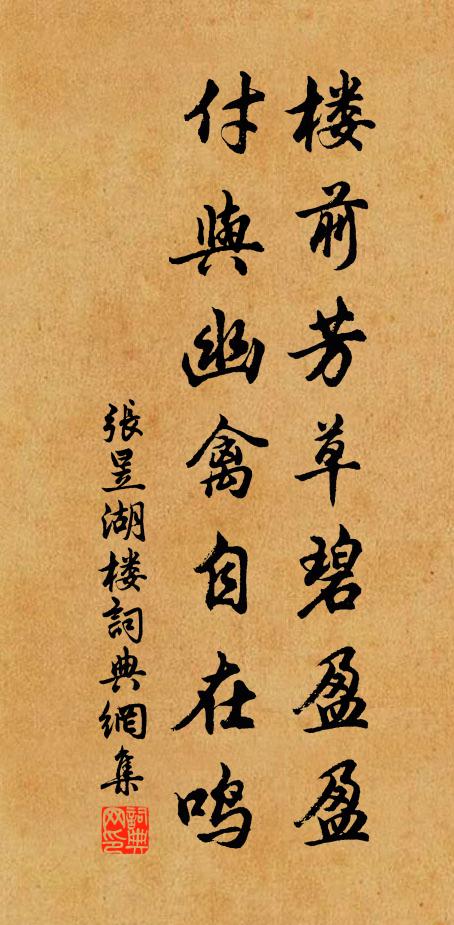 楼前芳草碧盈盈
付與幽禽自在鸣
張昱湖楼詞典網集
詞典网印